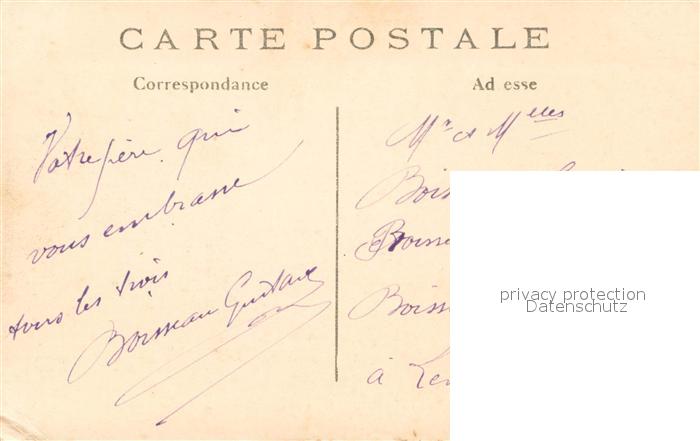 CARTE POSTALE
Correspondance
Votre père qui
vous embrasse
tous les trois
Boisseau Gustave
Ad esse
Mr et Melles
Bois
Boisse
Boiss
à
privacy protection
Datenschutz